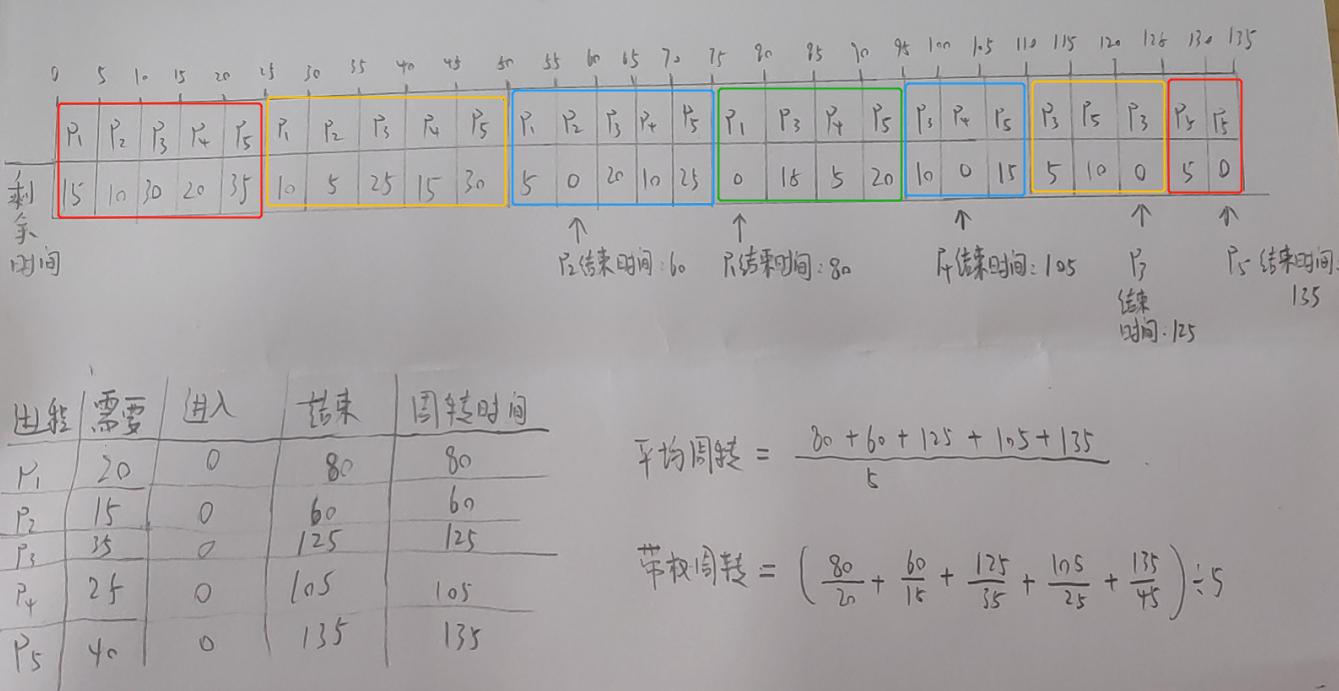 0 5 10 15 20 25 30 35 40 45 50 55 60 65 70 75 80 85 90 95 100 105 110 115 120 125 130 135
P1 P2 P3 P4 P5 P1 P2 P3 P4 P5 P1 P2 P3 P4 P5 P1 P3 P4 P5 P3 P4 P5 P3 P5 P3 P5 P5
剩余时间 15 10 30 20 35 10 5 25 15 30 5 0 20 10 25 0 15 5 20 10 0 15 5 10 0 5 0
P2结束时间:60 P1结束时间:80 P4结束时间:105 P3结束时间:125 P5结束时间:135
进程 需要 进入 结束 周转时间
P1 20 0 80 80
P2 15 0 60 60
P3 35 0 125 125
P4 25 0 105 105
P5 40 0 135 135
平均周转 = 80+60+125+105+135 / 5
带权周转 = (80/20 + 60/15 + 125/35 + 105/25 + 135/45) ÷ 5